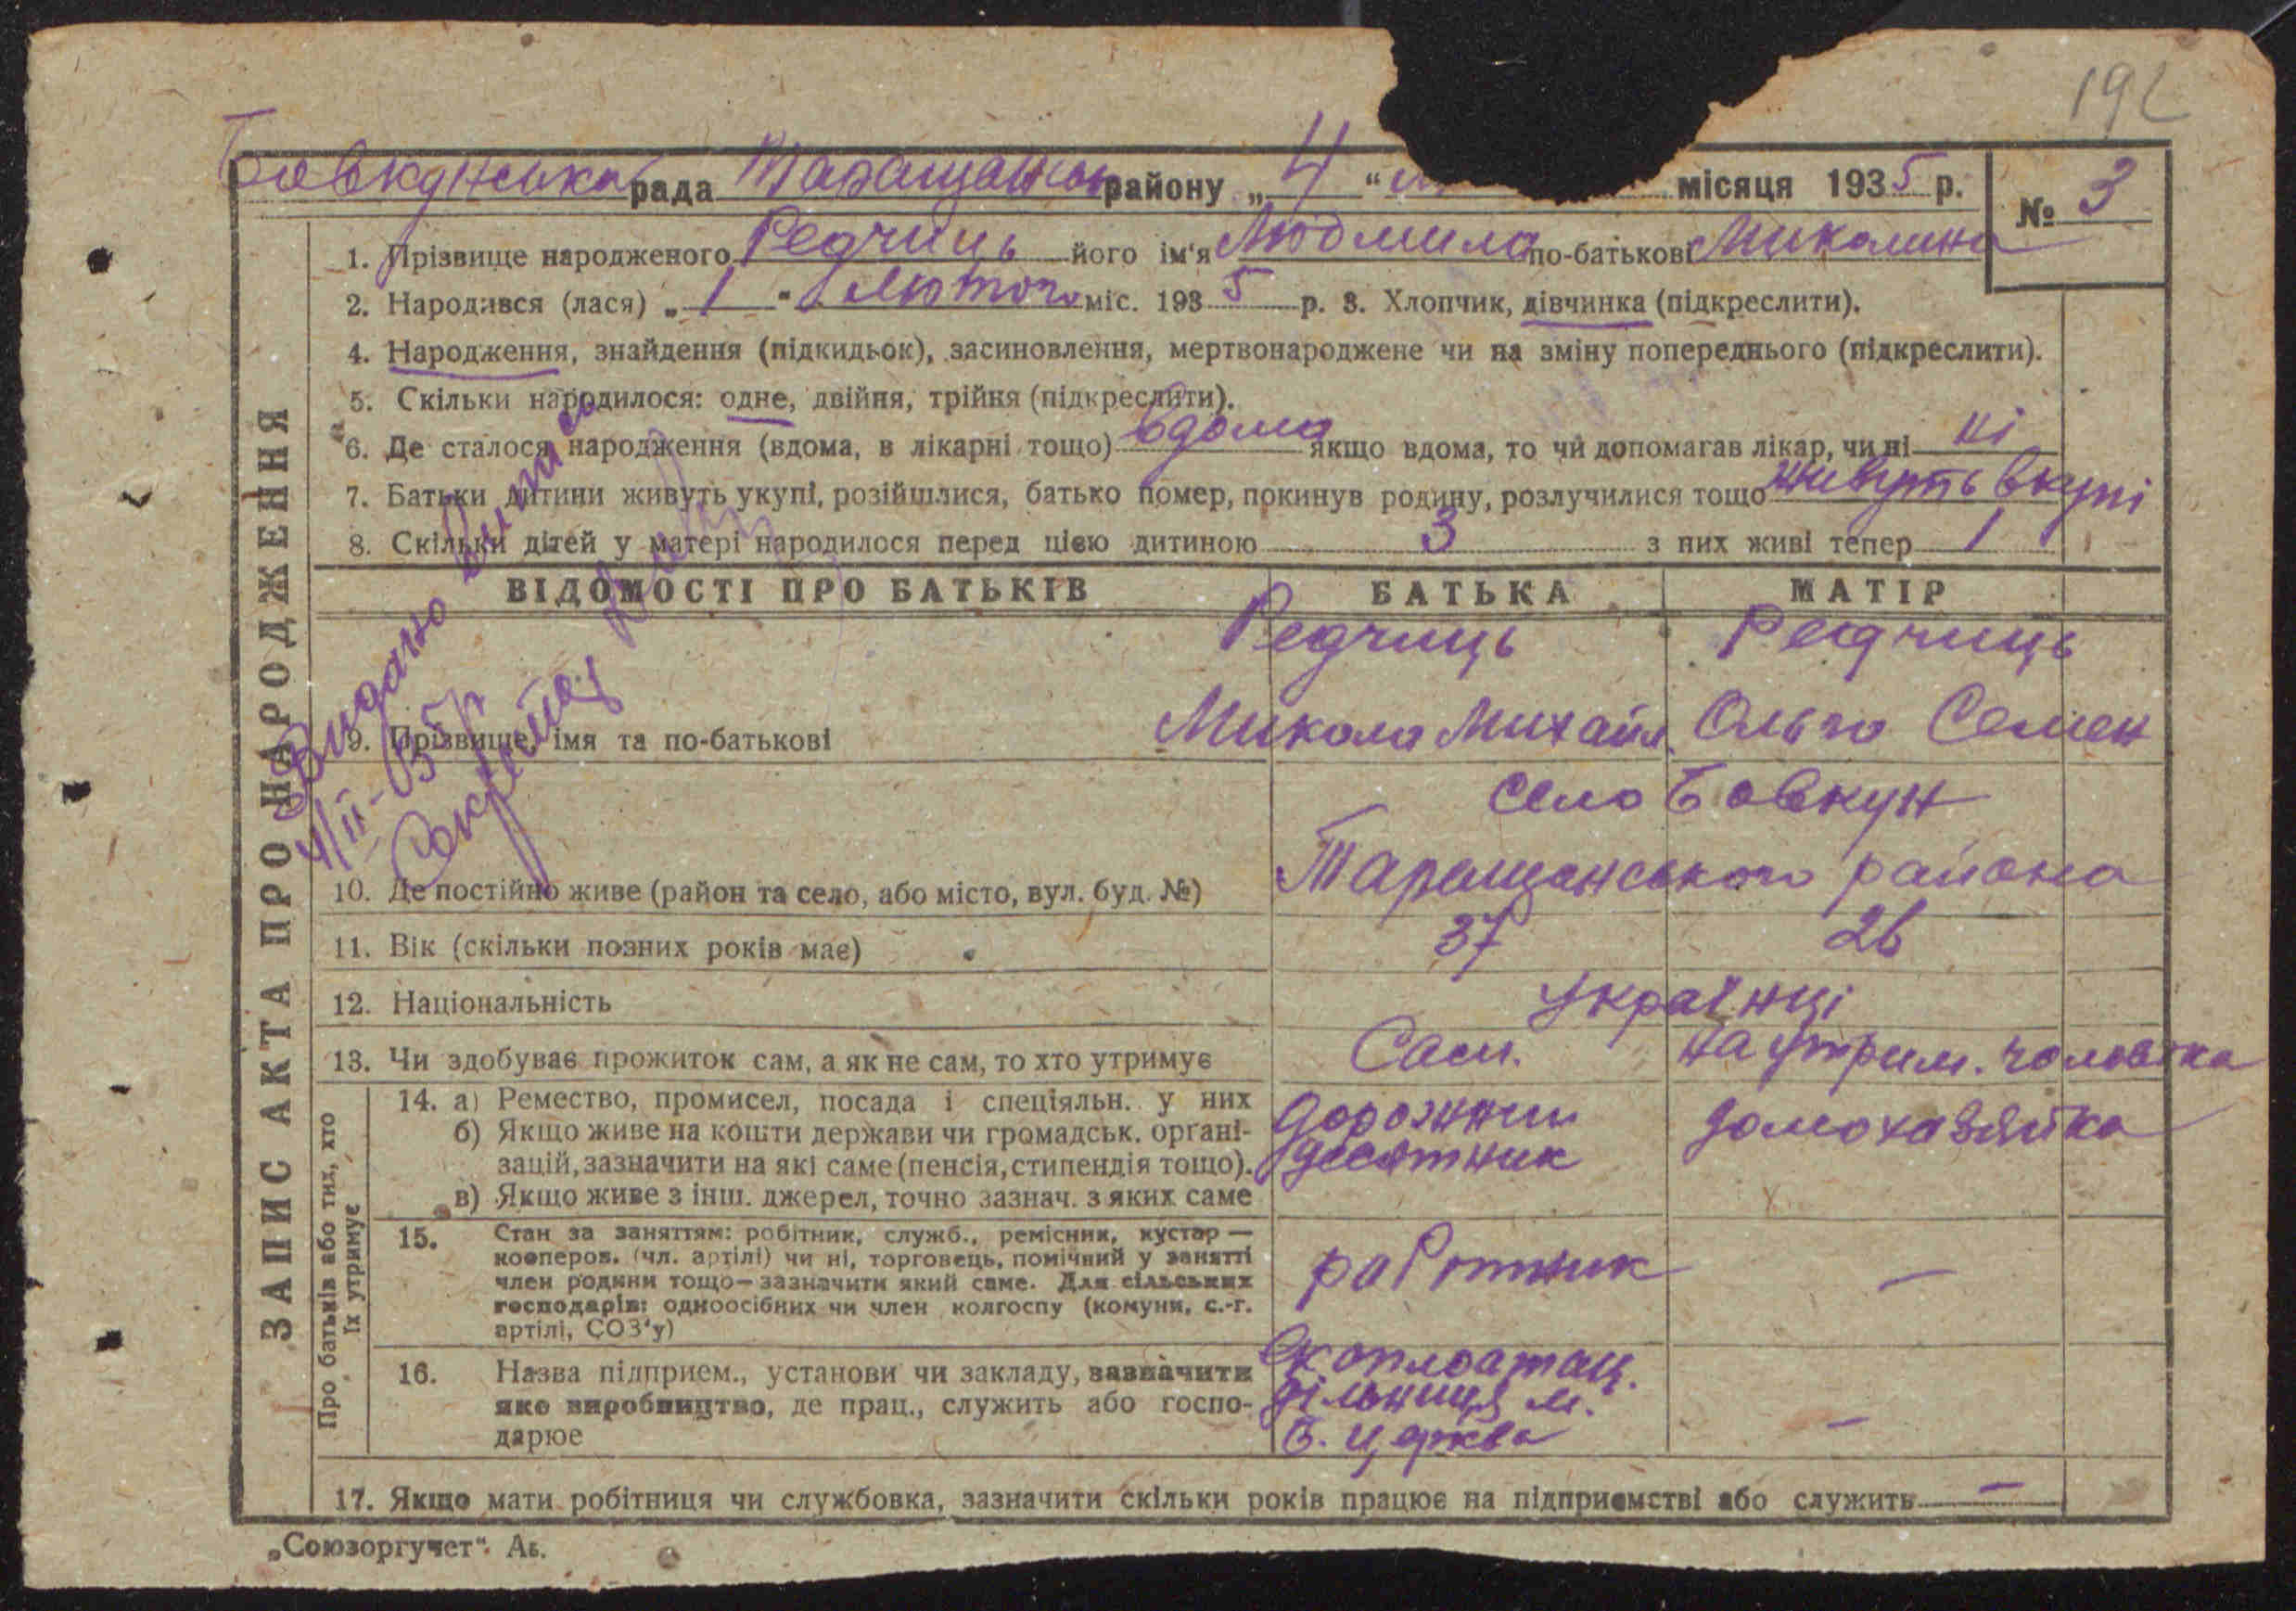 192
Бовкунська рада Таращанськ району „ 4 “ місяця 1935 р. № 3
ЗАПИС АКТА ПРО НАРОДЖЕННЯ
1. Прізвище народженого Редчиць його ім'я Людмила по-батькові Миколина
2. Народився (лася) „ 1 “ Лютого міс. 1935 р. 3. Хлопчик, дівчинка (підкреслити).
4. Народження, знайдення (підкидьок), засиновлення, мертвонароджене чи на зміну попереднього (підкреслити).
5. Скільки народилося: одне, двійня, трійня (підкреслити).
6. Де сталося народження (вдома, в лікарні тощо) вдома якщо вдома, то чи допомагав лікар, чи ні ні
7. Батьки дитини живуть укупі, розійшлися, батько помер, покинув родину, розлучилися тощо живуть вкупі
8. Скільки дітей у матері народилося перед цією дитиною 3 з них живі тепер 1
ВІДОМОСТІ ПРО БАТЬКІВ БАТЬКА МАТІР
Редчиць Редчиць
9. Прізвище, імя та по-батькові Микола Михайл. Ольга Семен
село Бовкун
10. Де постійно живе (район та село, або місто, вул. буд. №) Таращанського района
11. Вік (скільки позних років має) 37 26
12. Національність Українці
13. Чи здобуває прожиток сам, а як не сам, то хто утримує Сам. на утрим. чоловіка
Про батьків або тих, хто
їх утримує
14. а) Ремество, промисел, посада і спеціяльн. у них дорожний домохазяйка
б) Якщо живе на кошти держави чи громадськ. органі-
зацій, зазначити на які саме (пенсія, стипендія тощо). десятник
в) Якщо живе з інш. джерел, точно зазнач. з яких саме
15. Стан за заняттям: робітник, служб., ремісник, кустар —
кооперов. (чл. артілі) чи ні, торговець, помічний у занятті
член родини тощо—зазначити який саме. Для сільських работник —
господарів: одноосібних чи член колгоспу (комуни, с.-г.
артілі, СОЗ'у)
16. Назва підприєм., установи чи закладу, зазначити Експлоатац.
яке виробництво, де прац., служить або госпо- дільниця м. —
дарює Б. Церква
17. Якщо мати робітниця чи службовка, зазначити скільки років працює на підприємстві або служить —
Видано
4/II-35р
Секретар
„Союзоргучет“. Ав.